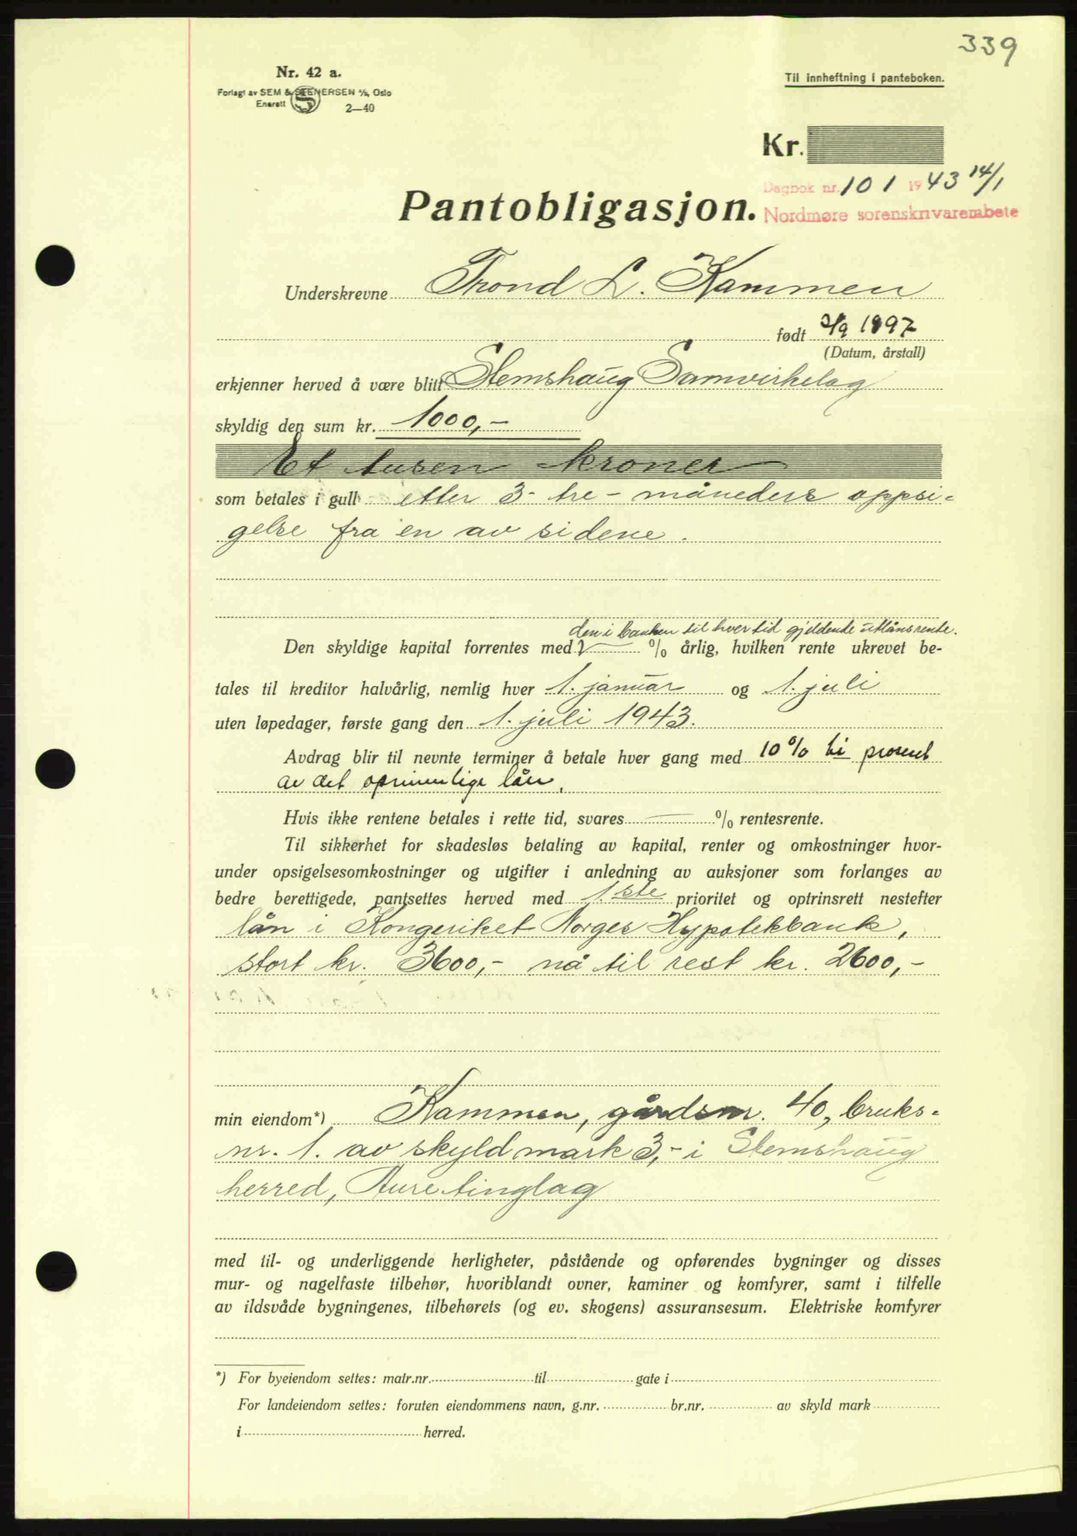 339
Nr. 42 a.
Forlagt av SEM & STENERSEN A/S, Oslo
Enerett 2—40
Til innheftning i panteboken.
Kr.
Dagbok nr. 101 1943 14/1
Nordmøre sorenskrivarembete
Pantobligasjon.
Underskrevne Trond L. Kammen
født 2/9 1897
(Datum, årstall)
erkjenner herved å være blitt Stemshaug Samvirkelag
skyldig den sum kr. 1000,-
Et tusen kroner
som betales i gull etter 3 - tre - måneders oppsi-
gelse fra en av sidene.
den i banken til hver tid gjeldende utlånsrente.
Den skyldige kapital forrentes med % årlig, hvilken rente ukrevet be-
tales til kreditor halvårlig, nemlig hver 1. januar og 1. juli
uten løpedager, første gang den 1. juli 1943.
Avdrag blir til nevnte terminer å betale hver gang med 10% ti prosent
av det oprinnelige lån.
Hvis ikke rentene betales i rette tid, svares — % rentesrente.
Til sikkerhet for skadesløs betaling av kapital, renter og omkostninger hvor-
under opsigelsesomkostninger og utgifter i anledning av auksjoner som forlanges av
bedre berettigede, pantsettes herved med 1.ste prioritet og optrinsrett nestefter
lån i Kongeriket Norges Hypotekbank,
stort kr. 3600,- nå til rest kr. 2600,-
min eiendom*) Kammen, gårdsnr. 40, bruks-
nr. 1. av skyld mark 3,- i Stemshaug
herred, Aure tinglag
med til- og underliggende herligheter, påstående og opførendes bygninger og disses
mur- og nagelfaste tilbehør, hvoriblandt ovner, kaminer og komfyrer, samt i tilfelle
av ildsvåde bygningenes, tilbehørets (og ev. skogens) assuransesum. Elektriske komfyrer
*) For byeiendom settes: matr.nr. til gate i
For landeiendom settes: foruten eiendommens navn, g.nr. br.nr. av skyld mark
i herred.